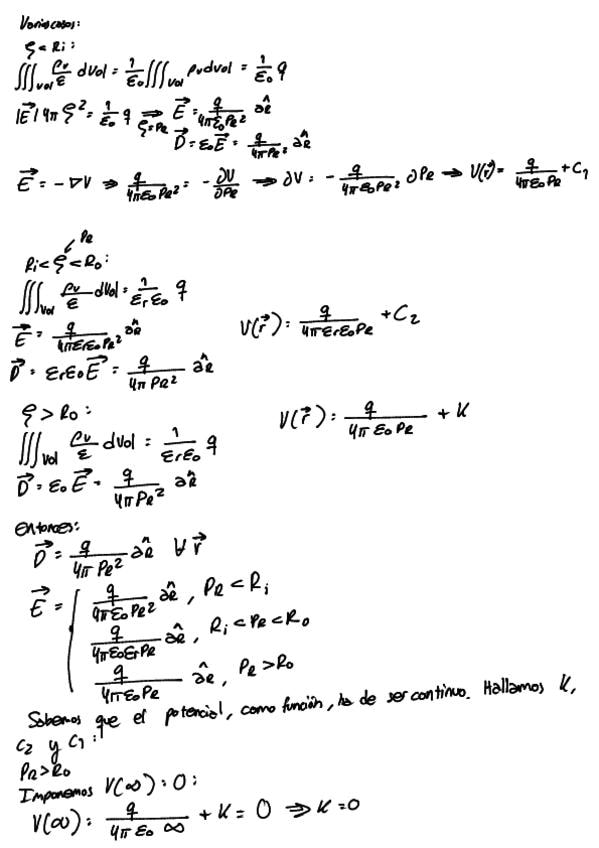 Varios casos:
ξ < Ri:
∭vol ρv/ε dvol = 1/ε₀ ∭vol ρv dvol = 1/ε₀ q
|E⃗| 4π ξ² = 1/ε₀ q ⇒ ξ=PR E⃗ = q/(4πε₀PR²) âR
D⃗ = ε₀E⃗ = q/(4πPR²) âR
E⃗ = -∇V ⇒ q/(4πε₀PR²) = -∂V/∂PR ⇒ ∂V = -q/(4πε₀PR²) ∂PR ⇒ V(r⃗) = q/(4πε₀PR) + C₁
PR
Ri < ξ < Ro:
∭vol ρv/ε dvol = 1/(εrε₀) q
E⃗ = q/(4πεrε₀PR²) âR V(r⃗) = q/(4πεrε₀PR) + C₂
D⃗ = εrε₀E⃗ = q/(4πPR²) âR
ξ > Ro: V(r⃗) = q/(4πε₀PR) + K
∭vol ρv/ε dvol = 1/(εrε₀) q
D⃗ = ε₀E⃗ = q/(4πPR²) âR
Entonces:
D⃗ = q/(4πPR²) âR ∀r⃗
E⃗ = { q/(4πε₀PR²) âR, PR < Ri
q/(4πε₀εrPR) âR, Ri < PR < Ro
q/(4πε₀PR) âR, PR > Ro
Sabemos que el potencial, como función, ha de ser continuo. Hallamos K,
C₂ y C₁:
PR > Ro
Imponemos V(∞) = 0:
V(∞) = q/(4πε₀∞) + K = 0 ⇒ K = 0